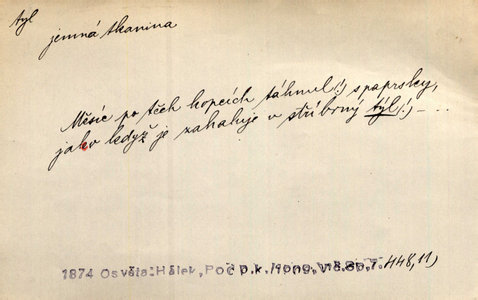 týl
jemná tkanina
Měsíc po těch kopcích táhnul(!) s paprsky,
jakoby když je zahaluje v stříbrný týl(!) – ...
1874 Osvěta: Hálek, Poč p.k. 448,11)